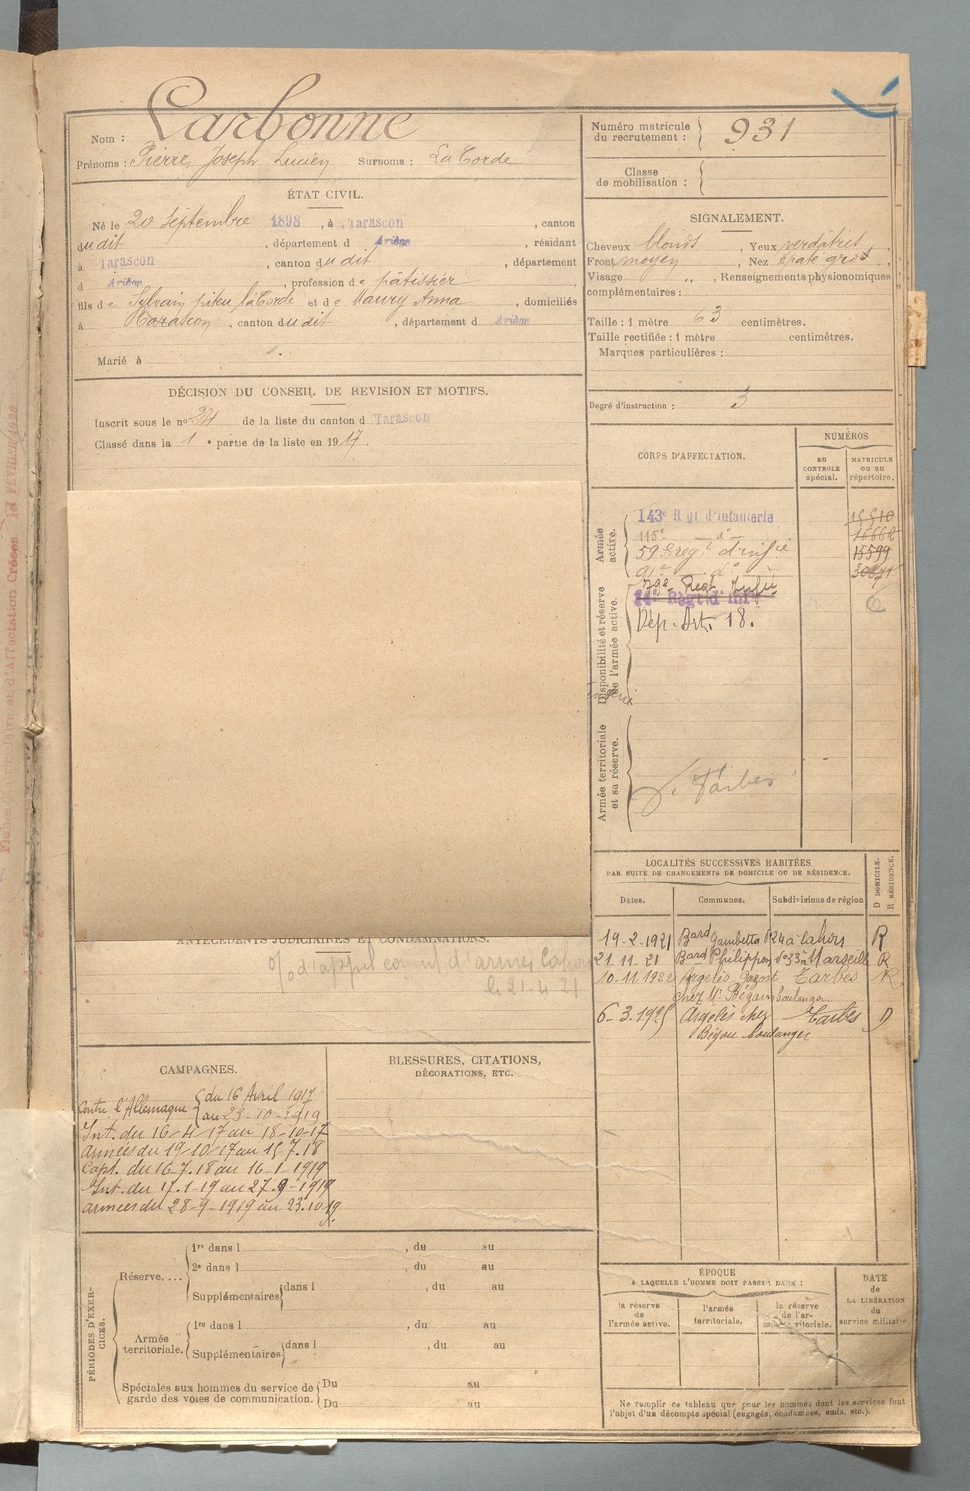 Nom : Carbonne
Prénoms : Pierre Joseph Lucien Surnoms : La Corde
ÉTAT CIVIL.
Né le 20 Septembre 1898, à Tarascon, canton
dudit, département d Ariège, résidant
à Tarascon, canton dudit, département
d Ariège, profession de pâtissier
fils de Sylvain piteu la Corde et de Maury Anna, domiciliés
à Tarascon, canton dudit, département d Ariège
Marié à
DÉCISION DU CONSEIL DE REVISION ET MOTIFS.
Inscrit sous le n° 24 de la liste du canton d Tarascon
Classé dans la 1e partie de la liste en 1917.
ANTÉCÉDENTS JUDICIAIRES ET CONDAMNATIONS.
d'appel
le 21-4-21
CAMPAGNES.
Contre l'Allemagne { du 16 Avril 1917
au 23-10-1919
Int. du 16-4-17 au 18-10-17
armées du 19-10-17 au 15.7.18
Capt. du 16-7.18 au 16-1-1919
Int. du 17.1-19 au 27.9-1919
armées du 28-9-1919 au 23.10.19
BLESSURES, CITATIONS,
DÉCORATIONS, ETC.
PÉRIODES D'EXERCICES.
Réserve....
1re dans l , du au
2e dans l , du au
Supplémentaires { dans l , du au
Armée
territoriale.
1re dans l , du au
Supplémentaires { dans l , du au
Spéciales aux hommes du service de
garde des voies de communication.
Du au
Du au
Numéro matricule
du recrutement : 931
Classe
de mobilisation :
SIGNALEMENT.
Cheveux blonds, Yeux verdâtres,
Front moyen, Nez Épaté gros,
Visage „, Renseignements physionomiques
complémentaires :
Taille : 1 mètre 63 centimètres.
Taille rectifiée : 1 mètre centimètres.
Marques particulières :
Degré d'instruction : 3
CORPS D'AFFECTATION.
NUMÉROS
au
CONTRÔLE
spécial.
MATRICULE
ou au
répertoire.
Armée
active.
143e Rgt d'Infanterie
115e — d° —
59e rég.t d'inf.ie 15599
91e — d° —
Disponibilité et réserve
de l'armée active.
Regt Inf.ie
14e Régt d'Inf.ie
Dép. Art. 18.
Armée territoriale
et sa réserve.
Tarbes
LOCALITÉS SUCCESSIVES HABITÉES
PAR SUITE DE CHANGEMENTS DE DOMICILE OU DE RÉSIDENCE.
D DOMICILE.
R RÉSIDENCE.
Dates.
Communes.
Subdivisions de région
19-2-1921 Bard Gambetta 24 à Cahors R
21.11.21 Bard Philippon n°33 à Marseille R
10.11.1922 Argelès Gazost Tarbes R
chez Mr Bégou boulanger
6-3.1925 Argelès chez Tarbes D
Bégou boulanger
ÉPOQUE
A LAQUELLE L'HOMME DOIT PASSER DANS :
la réserve
de
l'armée active.
l'armée
territoriale.
la réserve
de l'armée territoriale.
DATE
de
LA LIBÉRATION
du
service militaire.
Ne remplir ce tableau que pour les hommes dont les services font
l'objet d'un décompte spécial (engagés, condamnés, omis, etc.).